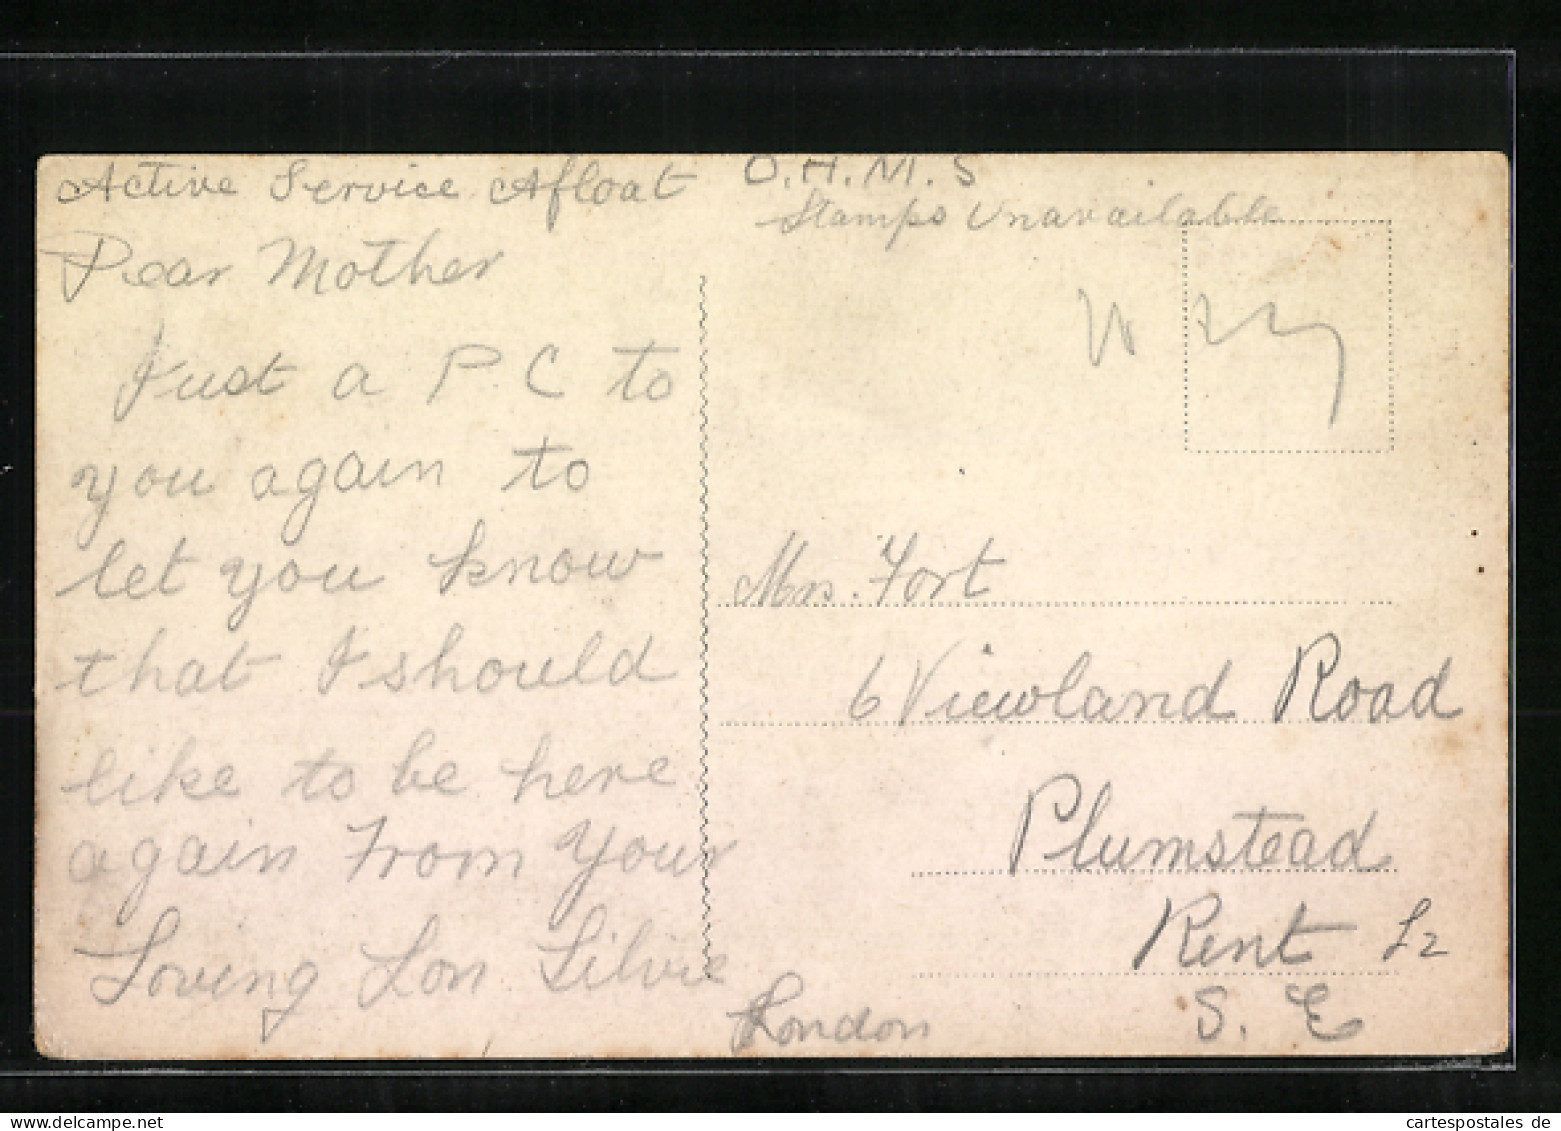 Active Service Afloat
Dear Mother
Just a P.C to
you again to
let you know
that I should
like to be here
again From your
Loving Son
O.H.M.S
Stamps Unavailable
Mrs. Fort
6 Viewland Road
Plumstead
Kent
S.E
London
cartespostales de